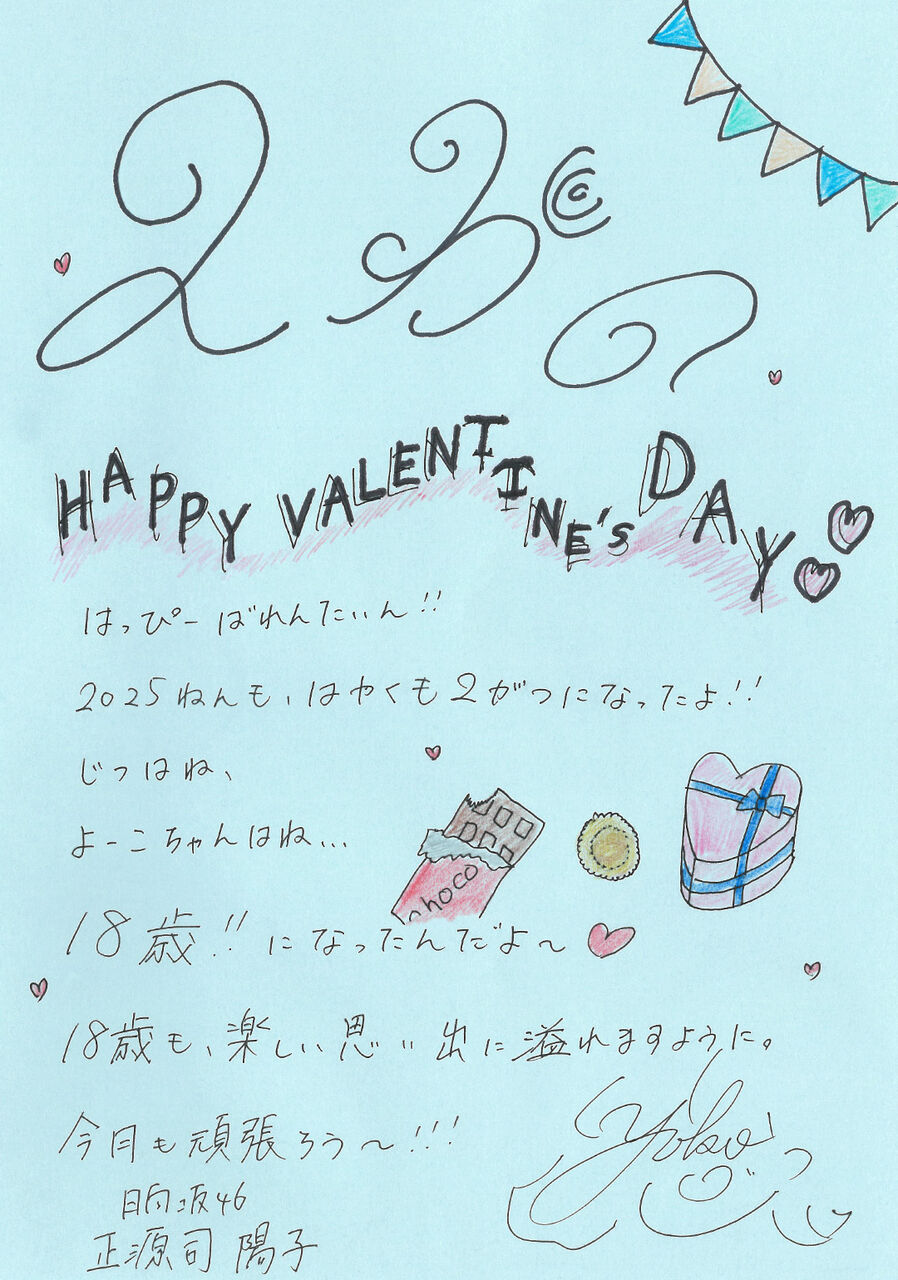 2がつ
HAPPY VALENTINE'S DAY
はっぴーばれんたいん!!
2025ねんも、はやくも2がつになったよ!!
じつはね、
よーこちゃんはね...
choco
18歳!!になったんだよ〜
18歳も、楽しい思い出に溢れますように。
今月も頑張ろう〜!!!
日向坂46
正源司 陽子
Yoko